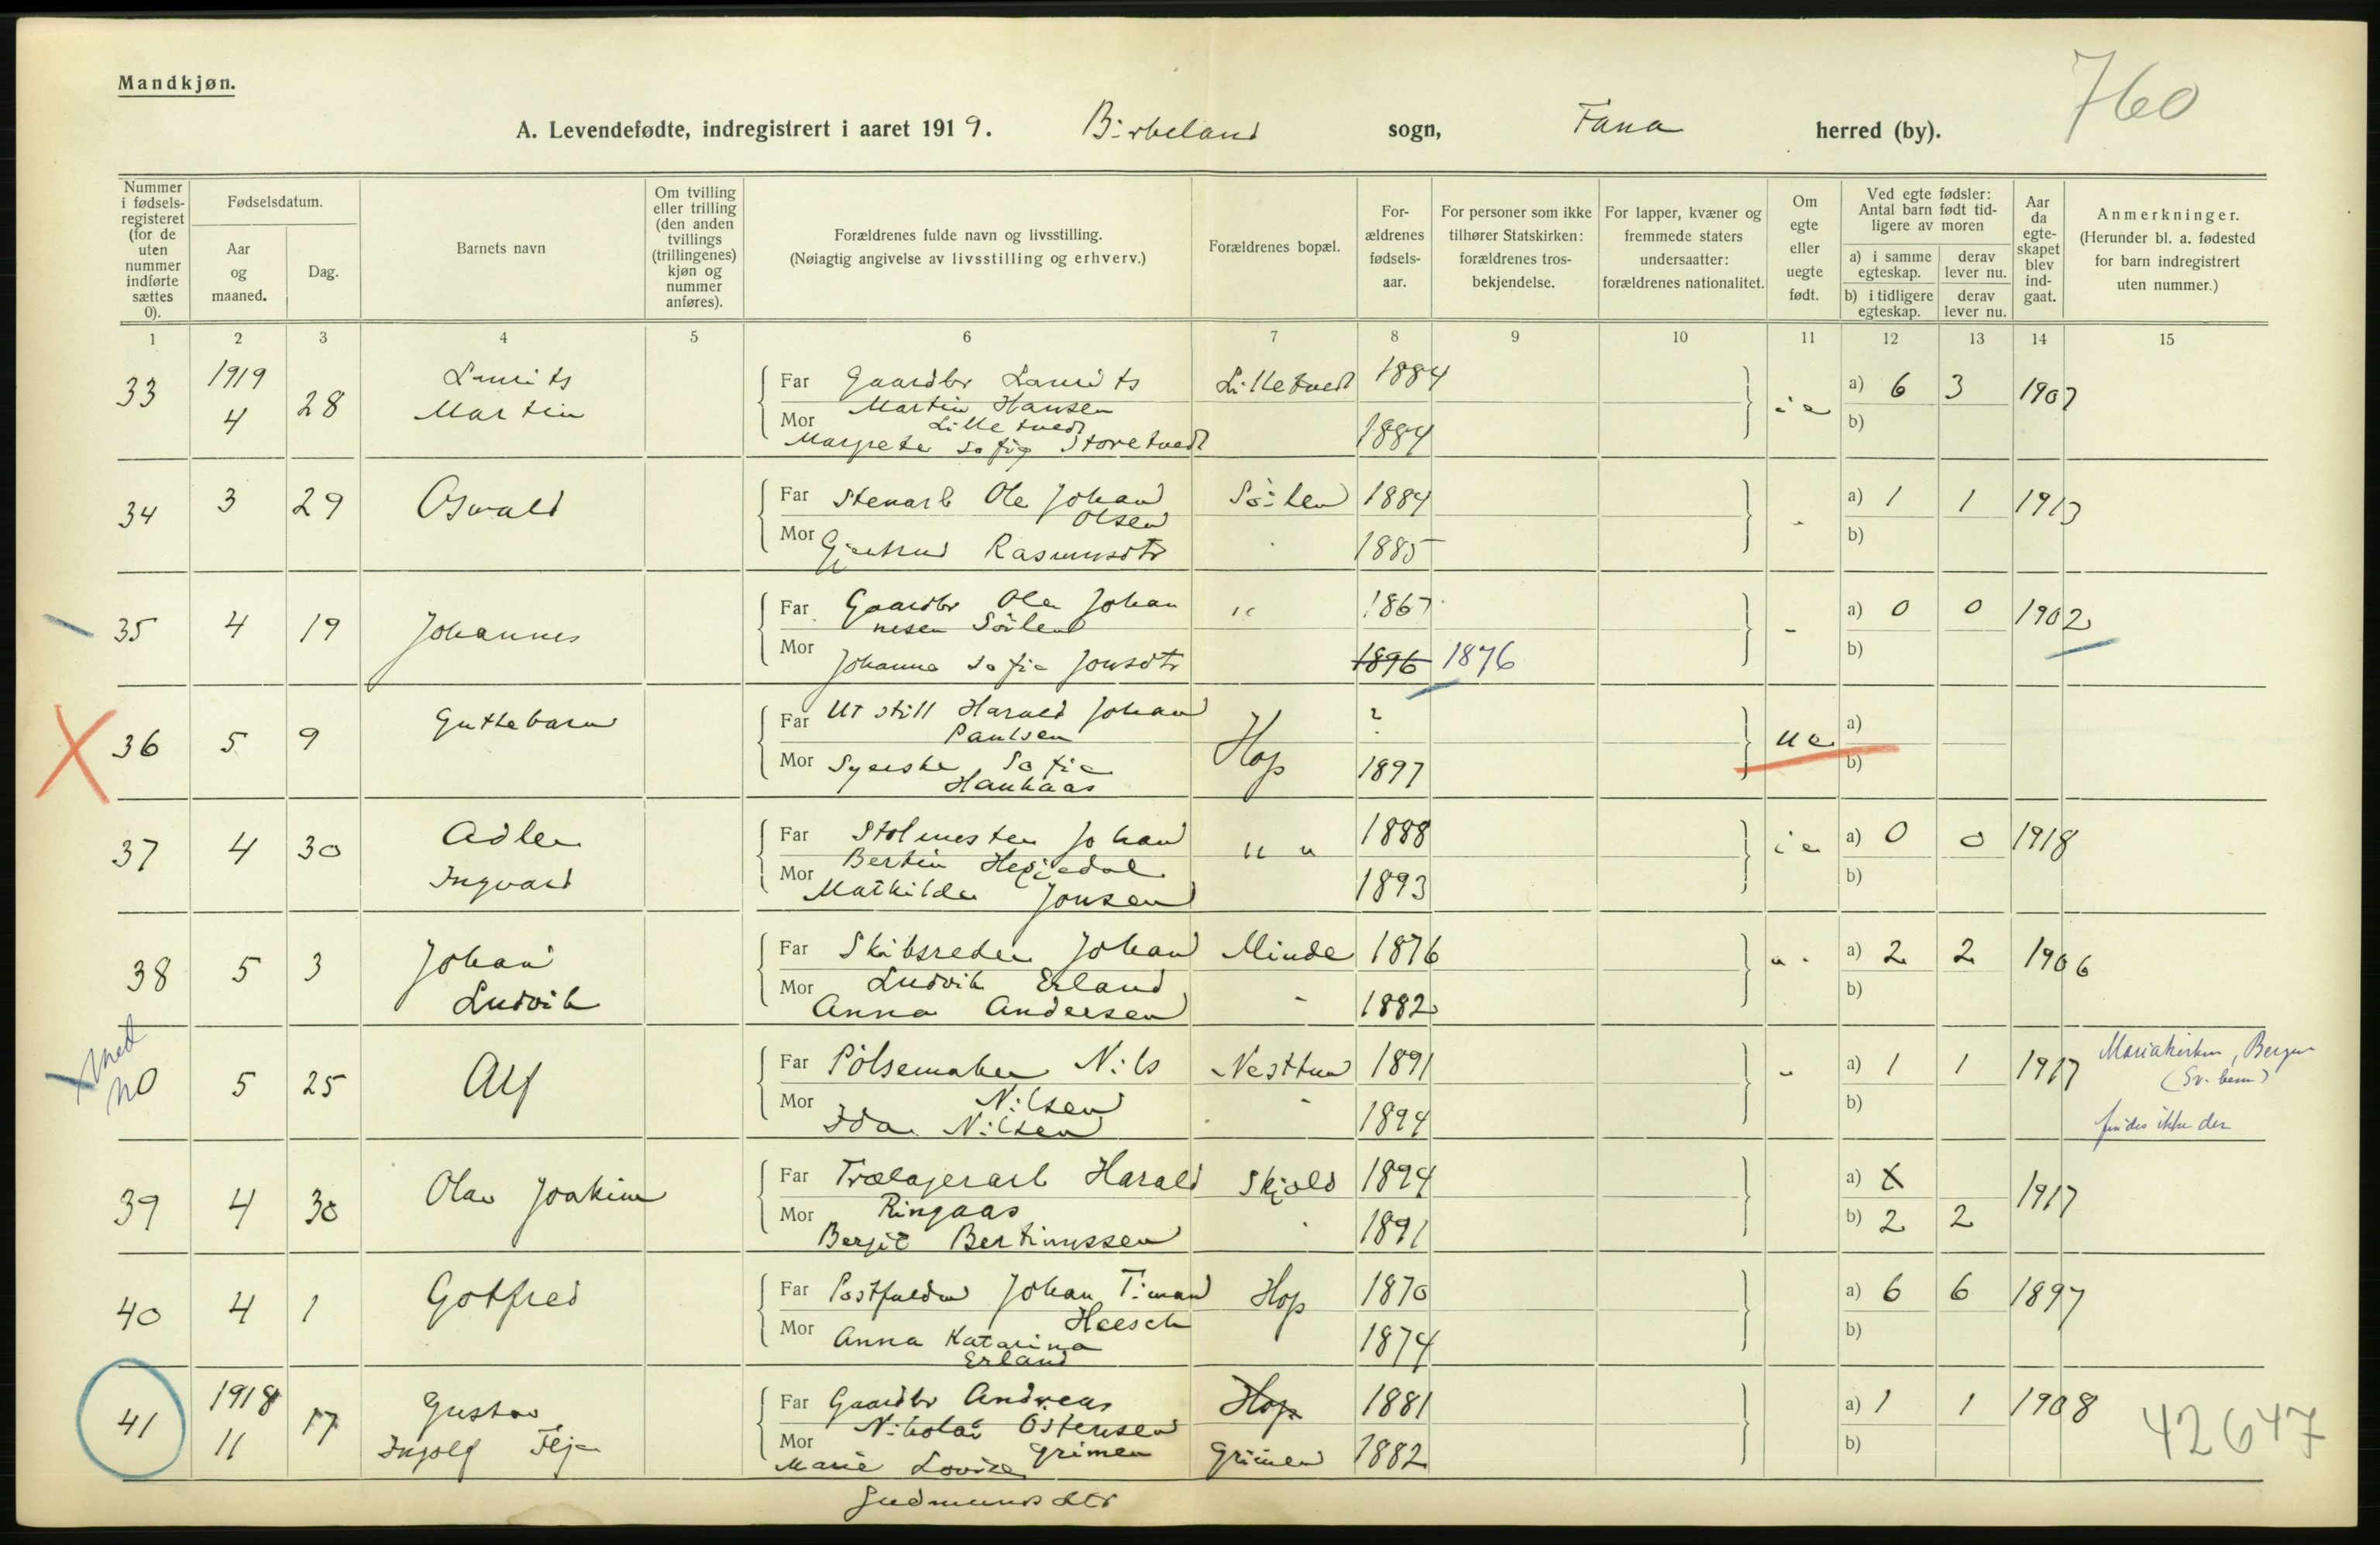 Mandkjøn.
760
A. Levendefødte, indregistrert i aaret 1919. Birkeland sogn, Fana herred (by).
Nummer i fødselsregisteret (for de uten nummer indførte sættes 0).
Fødselsdatum.
Aar og maaned.
Dag.
Barnets navn
Om tvilling eller trilling (den anden tvillings (trillingenes) kjøn og nummer anføres).
Forældrenes fulde navn og livsstilling.
(Nøiagtig angivelse av livsstilling og erhverv.)
Forældrenes bopæl.
Forældrenes fødselsaar.
For personer som ikke tilhører Statskirken: forældrenes trosbekjendelse.
For lapper, kvæner og fremmede staters undersaatter: forældrenes nationalitet.
Om egte eller uegte født.
Ved egte fødsler: Antal barn født tidligere av moren
a) i samme egteskap.
derav lever nu.
b) i tidligere egteskap.
derav lever nu.
Aar da egteskapet blev indgaat.
Anmerkninger.
(Herunder bl. a. fødested for barn indregistrert uten nummer.)
1 2 3 4 5 6 7 8 9 10 11 12 13 14 15
33 1919 4 28 Laurits Martin
Far Gaardbr Laurits Martin Hansen Lilletvedt Lilletvedt 1884
Mor Margrete Sofie Storetvedt 1884
ie a) 6 3 1907
b)
34 3 29 Oswald
Far Stenarb Ole Johan Olsen Söilen 1884
Mor Gjertrud Rasmusdtr 1885
" a) 1 1 1913
b)
35 4 19 Johannes
Far Gaardbr Ole Johannesen Söilen " 1867
Mor Johanna Sofie Jonsdtr 1896 1876
" a) 0 0 1902
b)
36 5 9 Guttebarn
Far Ur still Harald Johan Paulsen Hop ?
Mor Syerske Sofie Haukaas 1897
ue a)
b)
37 4 30 Adler Ingvard
Far Stolmester Johan Bertin Hegjedal " " 1888
Mor Mathilde Jonsen 1893
ie a) 0 0 1918
b)
38 5 3 Johan Ludvik
Far Skibsreder Johan Ludvik Erland Minde 1876
Mor Anna Andersen " 1882
" " a) 2 2 1906
b)
med no 0 5 25 Alf
Far Pölsemaker Nils Nilsen Nesttun 1891
Mor Ida Nilsen " 1894
" a) 1 1 1917 Mariakirken, Bergen
b) findes ikke der
39 4 30 Olav Joakim
Far Trælagerarb Harald Ringaas Skjold 1894
Mor Bergit Bertinussen " 1891
a) x 1917
b) 2 2
40 4 1 Gotfred
Far Postfuldm Johan Timan Heesch Hop 1870
Mor Anna Katarina Erland 1874
a) 6 6 1897
b)
41 1918 11 17 Gustav Ingolf
Far Gaardbr Andreas Nikolai Östensen Grimen Hop 1881
Mor Marie Lovise Gudmundsdtr Grimen 1882
a) 1 1 1908
b)
42647